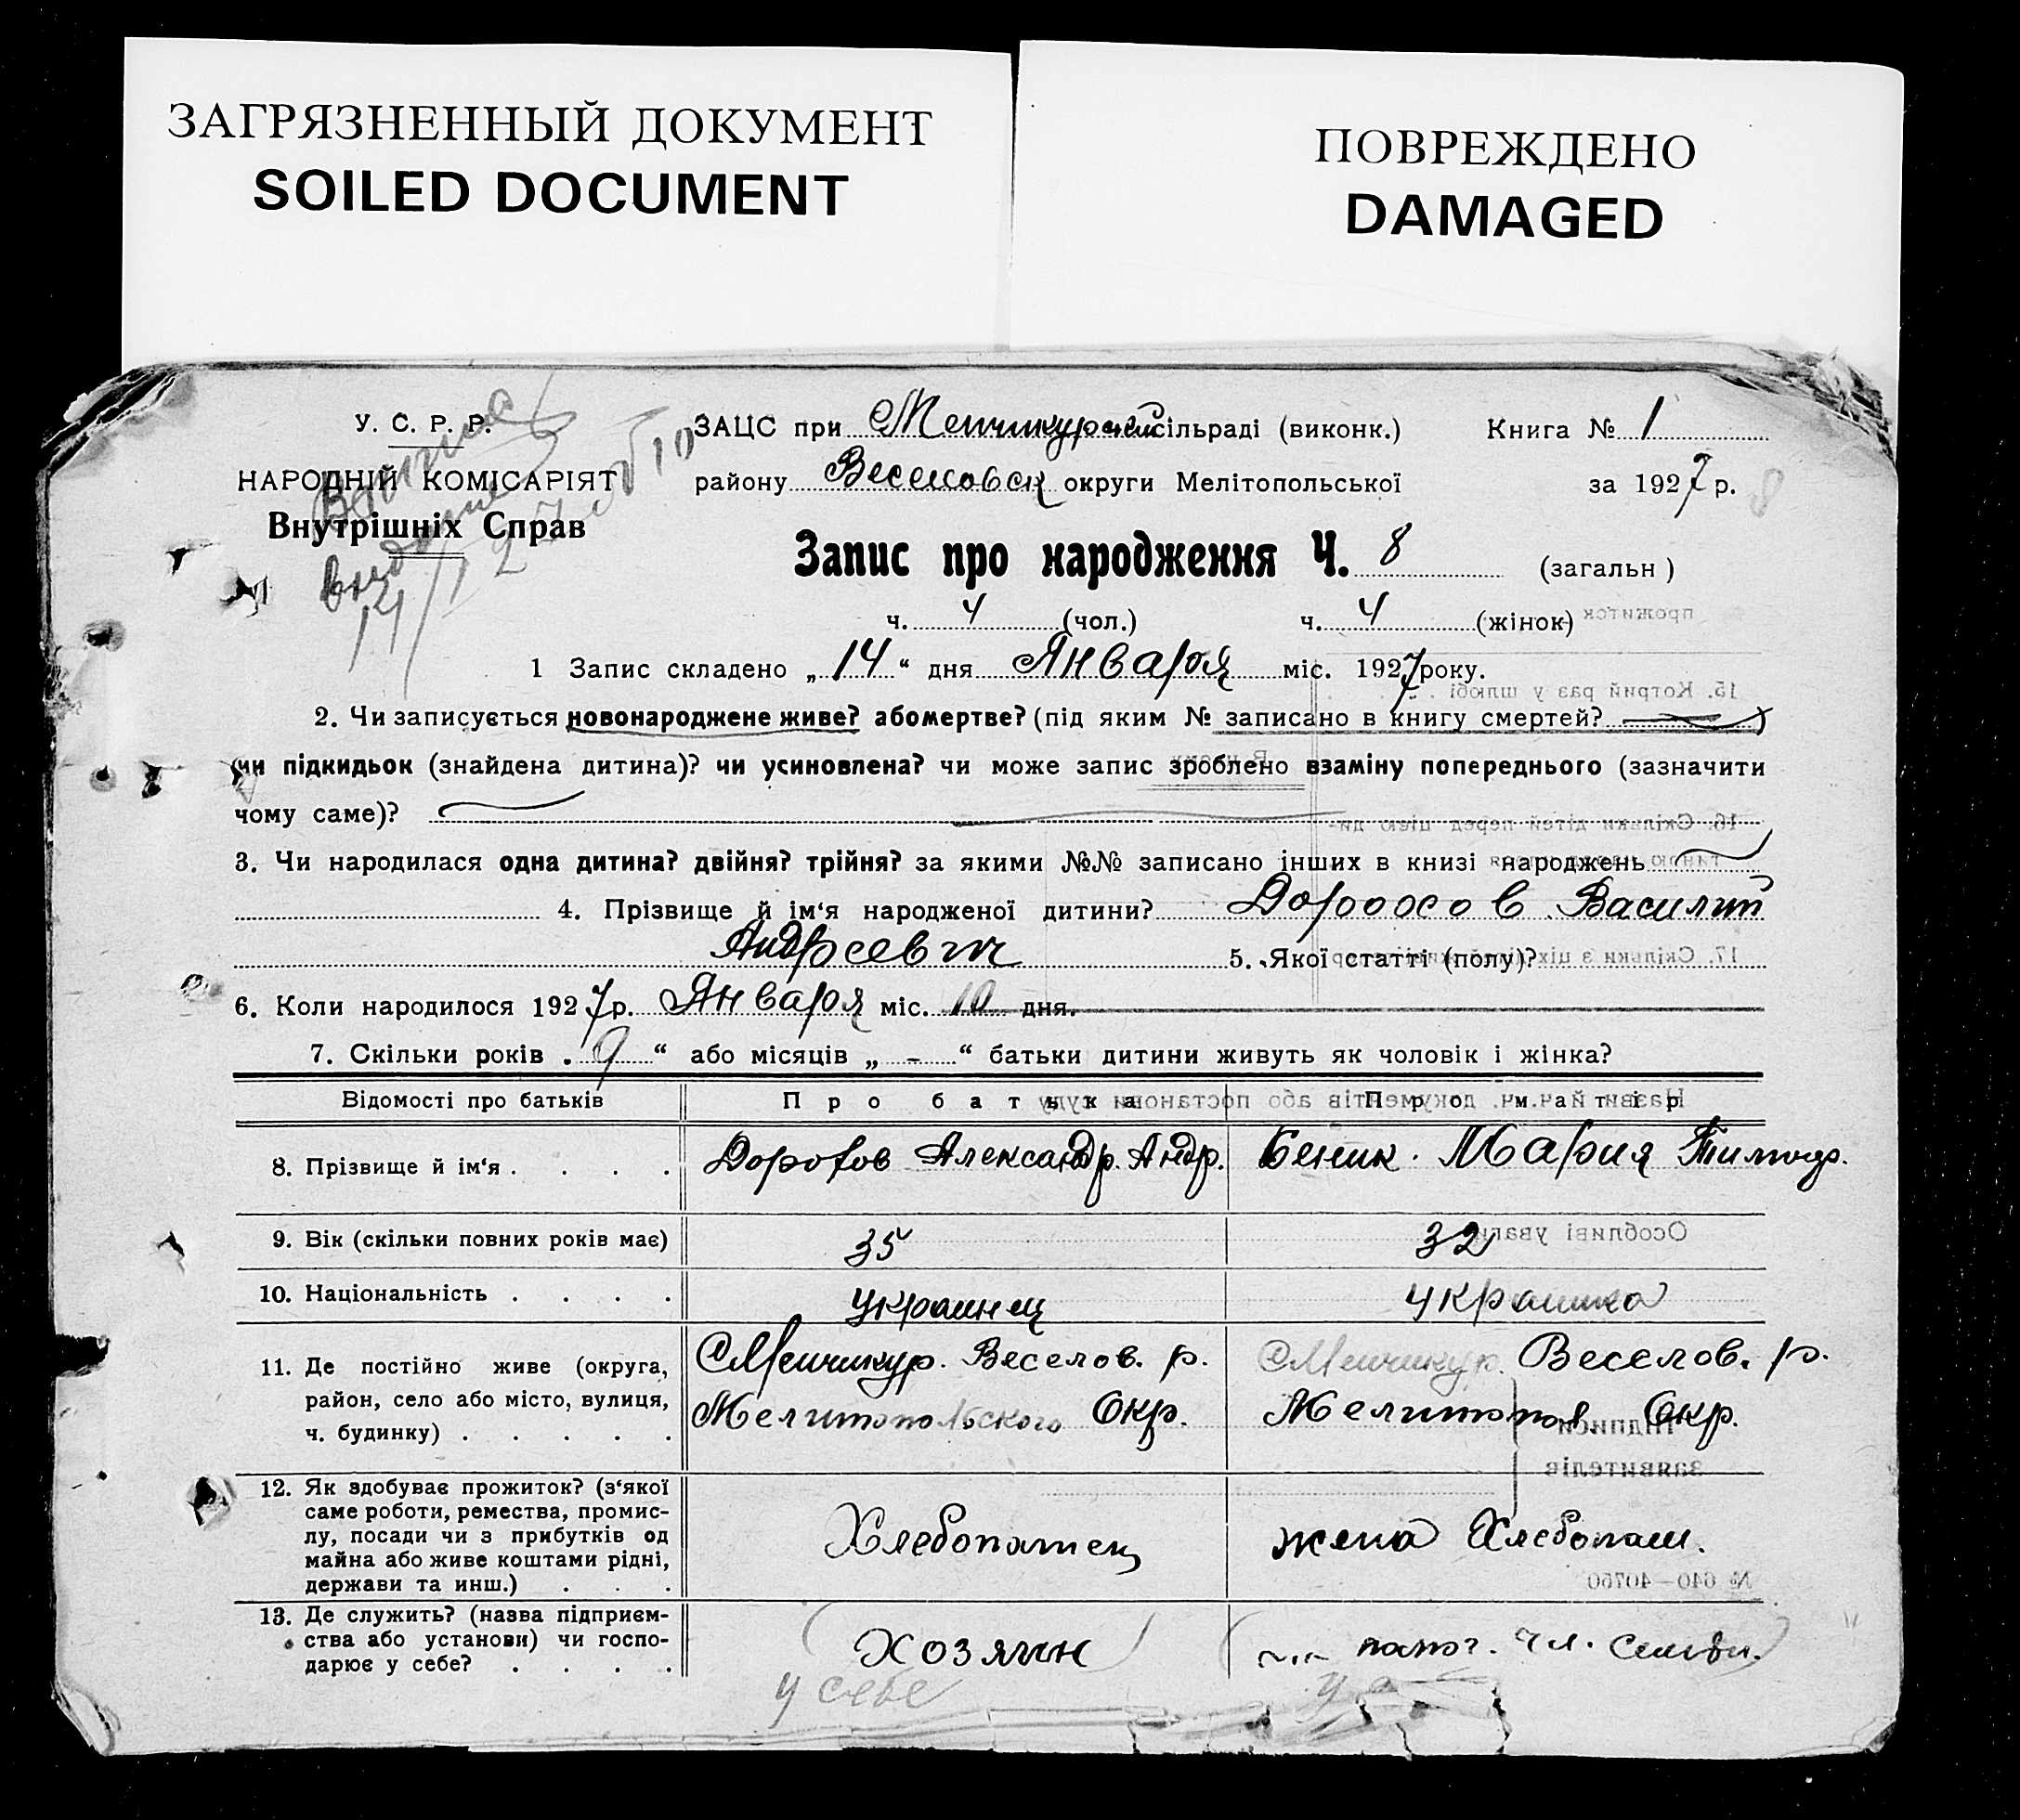 ЗАГРЯЗНЕННЫЙ ДОКУМЕНТ
SOILED DOCUMENT
ПОВРЕЖДЕНО
DAMAGED
У. С. Р. Р.
НАРОДНІЙ КОМІСАРІЯТ
Внутрішніх Справ
ЗАЦС при Менчикур сільраді (виконк.) Книга № 1
району Веселовск округи Мелітопольської за 1927 р.
Запис про народження Ч. 8 (загальн )
ч. 4 (чол.) ч. 4 (жінок)
1 Запис складено „ 14 “ дня Января міс. 1927 року.
2. Чи записується новонароджене живе? або мертве? (під яким № записано в книгу смертей? )
(чи підкидьок (знайдена дитина)? чи усиновлена? чи може запис зроблено взаміну попереднього (зазначити
чому саме)?
3. Чи народилася одна дитина? двійня? трійня? за якими №№ записано інших в книзі народжень
4. Прізвище й ім‘я народженої дитини? Василий
Андреевич 5. Якої статті (полу)?
6. Коли народилося 1927 р. Января міс. 10 дня.
7. Скільки років „ 9 “ або місяців „ - “ батьки дитини живуть як чоловік і жінка?
Відомості про батьків Про батька Про матір
8. Прізвище й ім‘я . . . . Дорофов Александр. Андр. Мария
9. Вік (скільки повних років має) 35 32
10. Національність . . . . Украинец украинка
11. Де постійно живе (округа, Менчикур. Веселов. р. Менчикур. Веселов. р.
район, село або місто, вулиця, Мелитопольского Окр. Мелитопол Окр.
ч. будинку) . . . . .
12. Як здобуває прожиток? (з‘якої
саме роботи, ремества, промис-
лу, посади чи з прибутків од Хлебопашец жена Хлебопаш.
майна або живе коштами рідні,
держави та инш.) . . .
13. Де служить? (назва підприєм-
ства або установи) чи госпо- (Хозяин) помог. чл. семьи.)
дарює у себе? . . . .
у себе